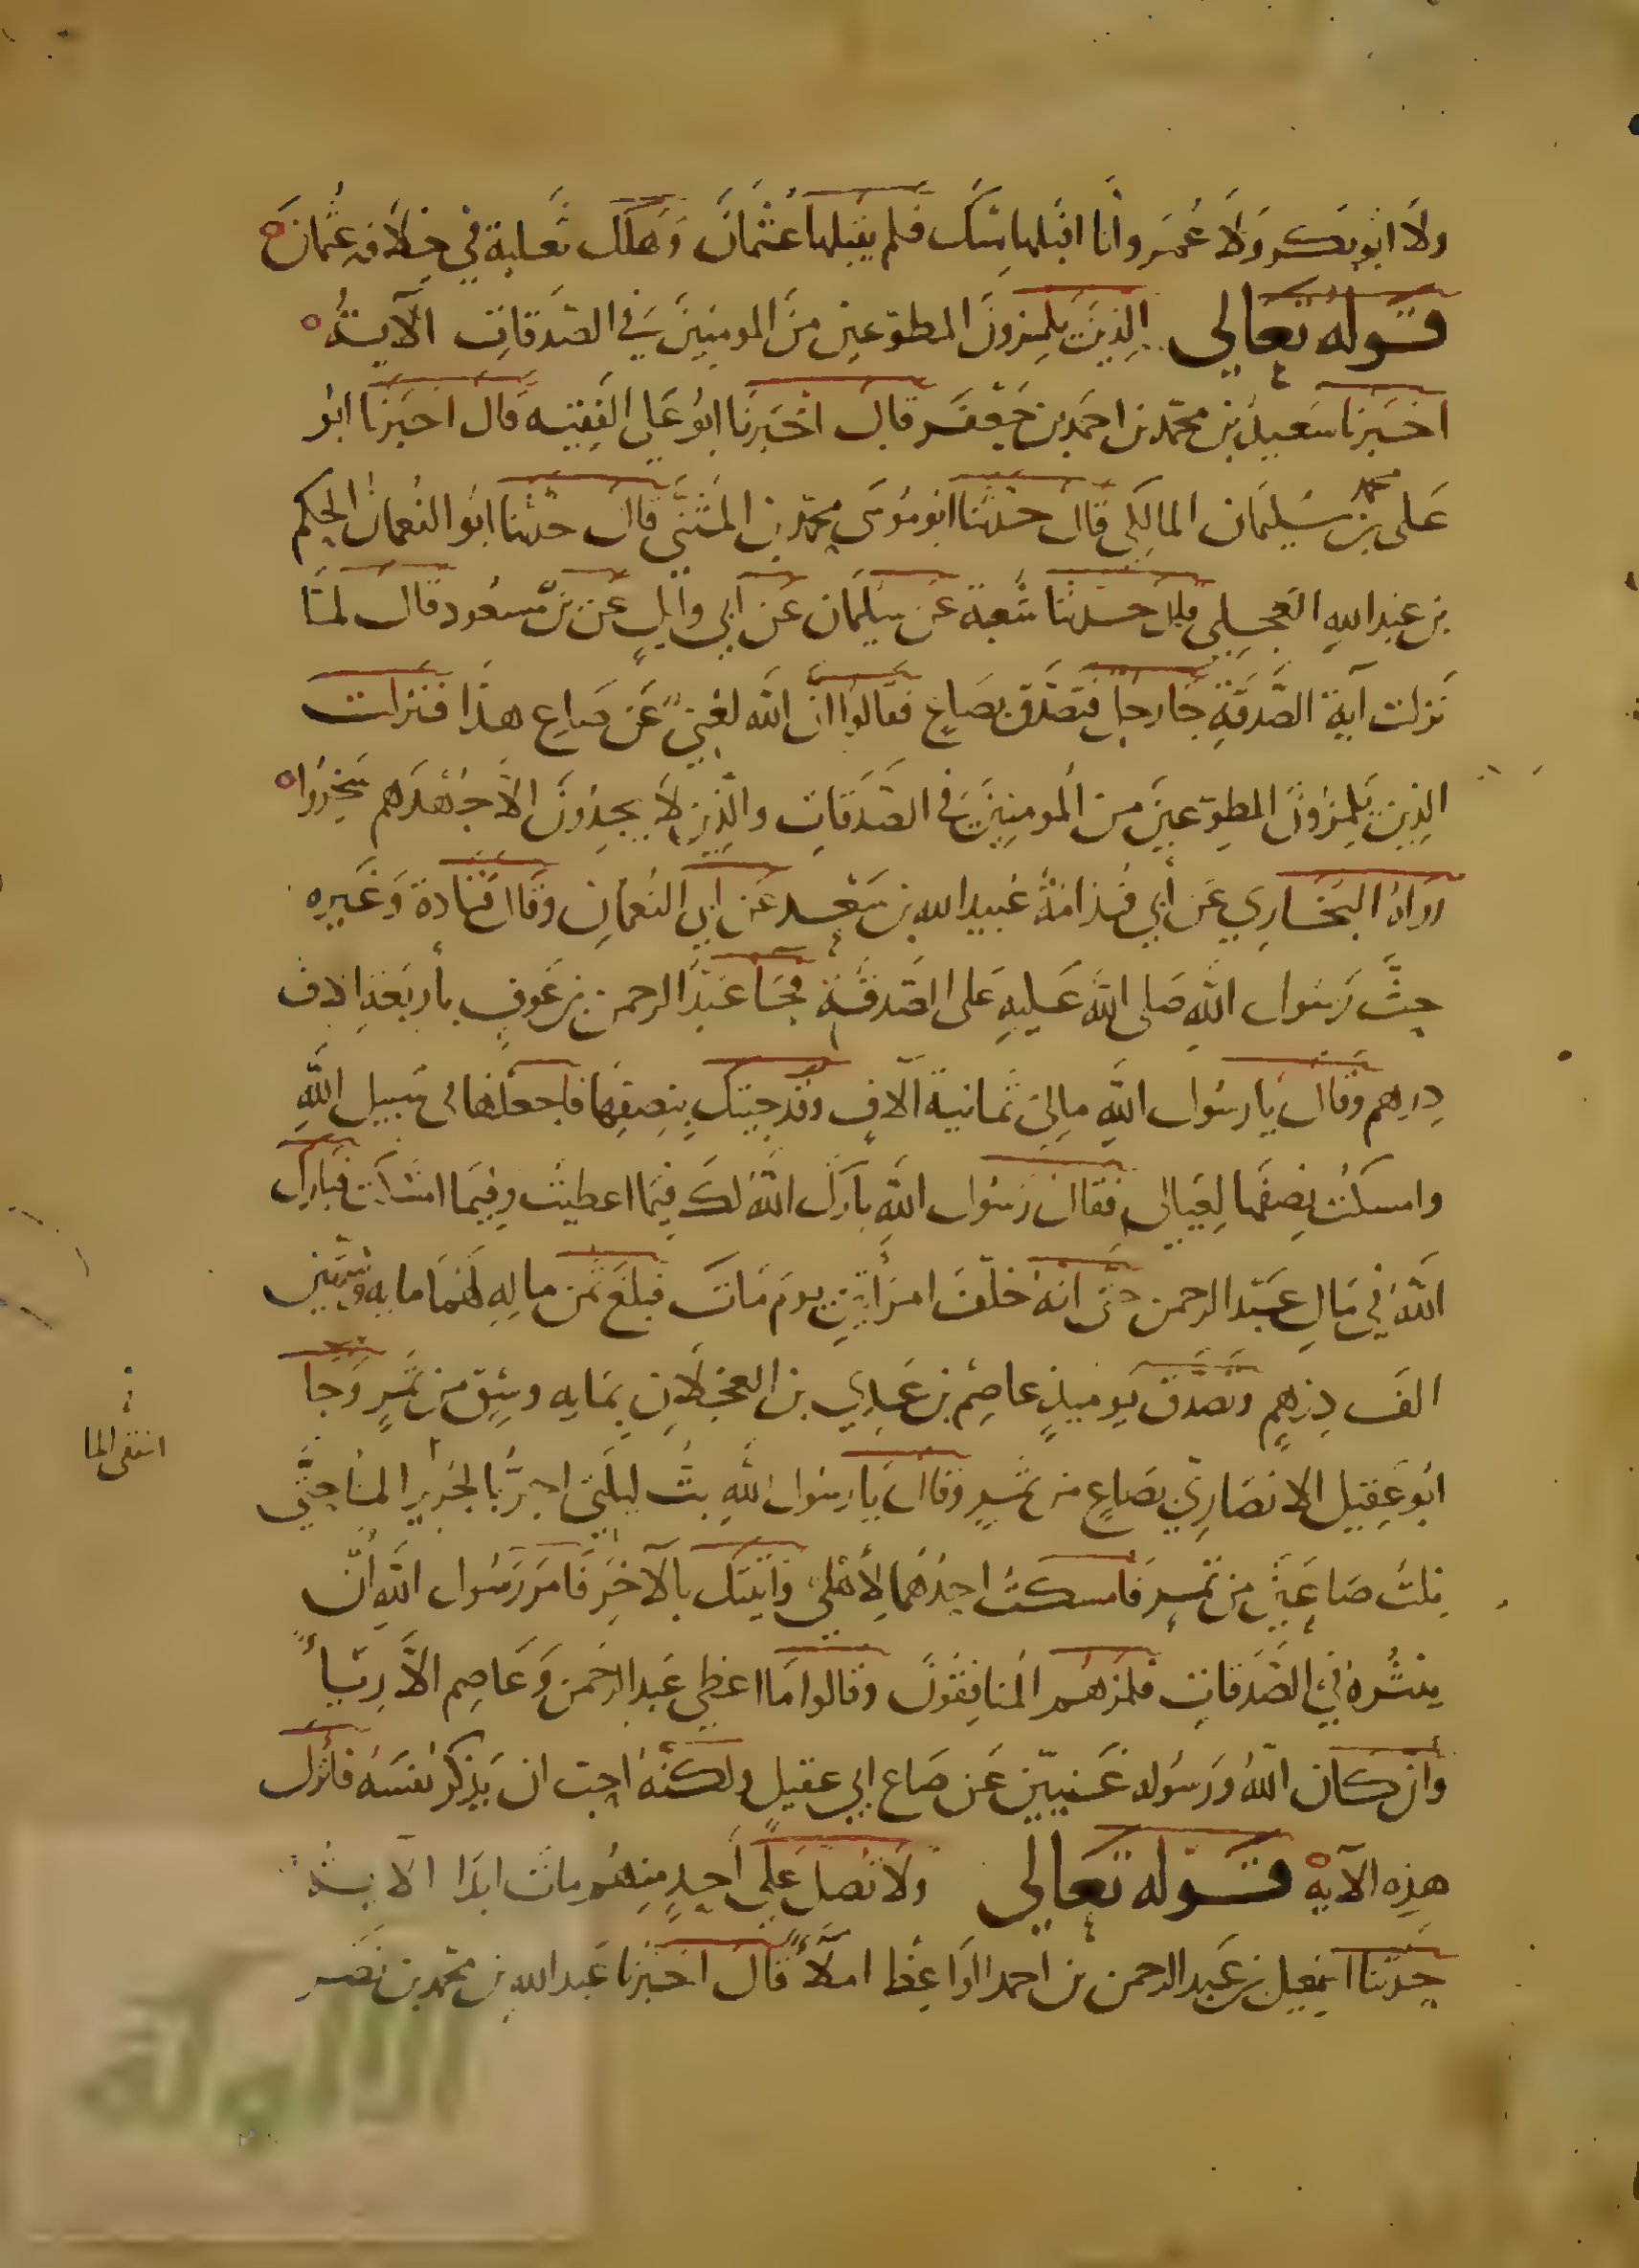 ولا ابو بكر ولا عمر وانا اقبلها منك فلم يقبلها عثمان وهلك ثعلبة في خلافة عثمان
قوله تعالى الذين يلمزون المطوعين من المومنين في الصدقات الآية
اخبرنا سعيد بن محمد بن احمد بن جعفر قال اخبرنا ابو علي الفقيه قال اخبرنا ابو
علي بن محمد سليمان المالكي قال حدثنا ابو موسى محمد بن المثنى قال حدثنا ابو النعمان الحكم
بن عبد الله العجلي قال حدثنا شعبة عن سليمان عن ابي وايل عن بن مسعود قال لما
نزلت آية الصدقة جا رجل فتصدق بصاع فقالوا ان الله لغني عن صاع هذا فنزلت
الذين يلمزون المطوعين من المومنين في الصدقات والذين لا يجدون الا جهدهم
رواه البخاري عن أبي قدامة عبيد الله بن سعيد عن ابي النعمان وقال قتادة وغيره
حث رسول الله صلى الله عليه على الصدقة فجا عبد الرحمن بن عوف بأربعة الاف
درهم وقال يا رسول الله مالي ثمانية آلاف وقد جيتك بنصفها فاجعلها في سبيل الله
وامسكت نصفها لعيالي فقال رسول الله بارك الله لك فيما اعطيت وفيما امسكت فبارك
الله في مال عبد الرحمن حتى انه خلف امرأتين يوم مات فبلغ ثمن ماله لهما مايه وستين
الف درهم وتصدق يوميذ عاصم بن عدي بن العجلان بمايه وسق من تمر وجا
ابو عقيل الانصاري بصاع من تمر وقال يا رسول الله بت ليلتي اجر بالجرير الما حتى
نلت صاعين من تمر فامسكت احدهما لأهلي واتيتك بالآخر فامر رسول الله أن
ينثره في الصدقات فلمزهم المنافقون وقالوا ما اعطى عبد الرحمن وعاصم الا رياً
وان كان الله ورسوله غنيين عن صاع ابي عقيل ولكنه احب ان يذكر نفسه فانزل
هذه الآيه قوله تعالى ولا تصل على أحد منهم مات ابدا الآية
حدثنا اسمعيل بن عبد الرحمن بن احمد الواعظ املآً قال اخبرنا عبد الله بن محمد بن نصر